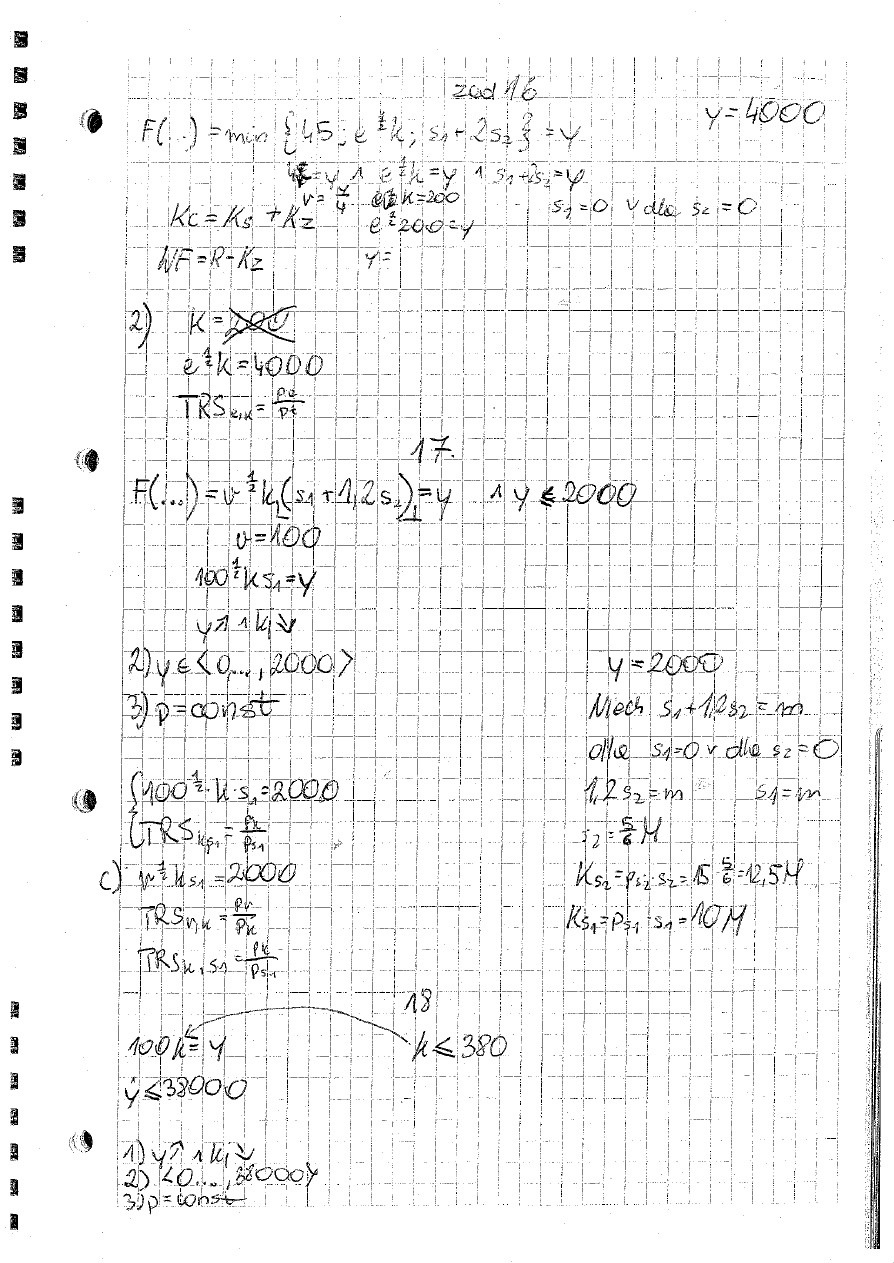 zad 16
y = 4000
F(...) = min {45 ; e^½k ; s₁ + 2s₂} = y
= y ∧ e^½k = y ∧ s₁+2s₂ = y
v = y/4 e^½k = 200 s₁ = 0 ∨ dla s₂ = 0
Kc = Ks + Kz e^½200 = y
WF = R - Kz y =
2) k = 200
e^½k = 4000
TRS e,k = 
17.
F(...) = v^½ k (s₁ + 1,2s₂) = y ∧ y ≤ 2000
v = 100
100^½ k s₁ = y
y↗ ∧ kj ↘
2) y ∈ <0,..., 2000>
3) p = const
{100^½ · k · s₁ = 2000
{TRS k,s₁ = pk/ps₁
c) v^½ k s₁ = 2000
TRS v,k = pv/pk
TRS k,s₁ = pk/ps₁
y = 2000
Niech s₁ + 1,2s₂ = m
dla s₁=0 ∨ dla s₂ = 0
1,2s₂ = m s₁ = m
s₂ = 5/6 M
Ks₂ = ps₂ · s₂ = 15 · 5/6 = 12,5M
Ks₁ = ps₁ · s₁ = 10M
18
100k = y k ≤ 380
y ≤ 38000
1) y↗ ∧ kj ↘
2) <0..., 38000>
3) p = const